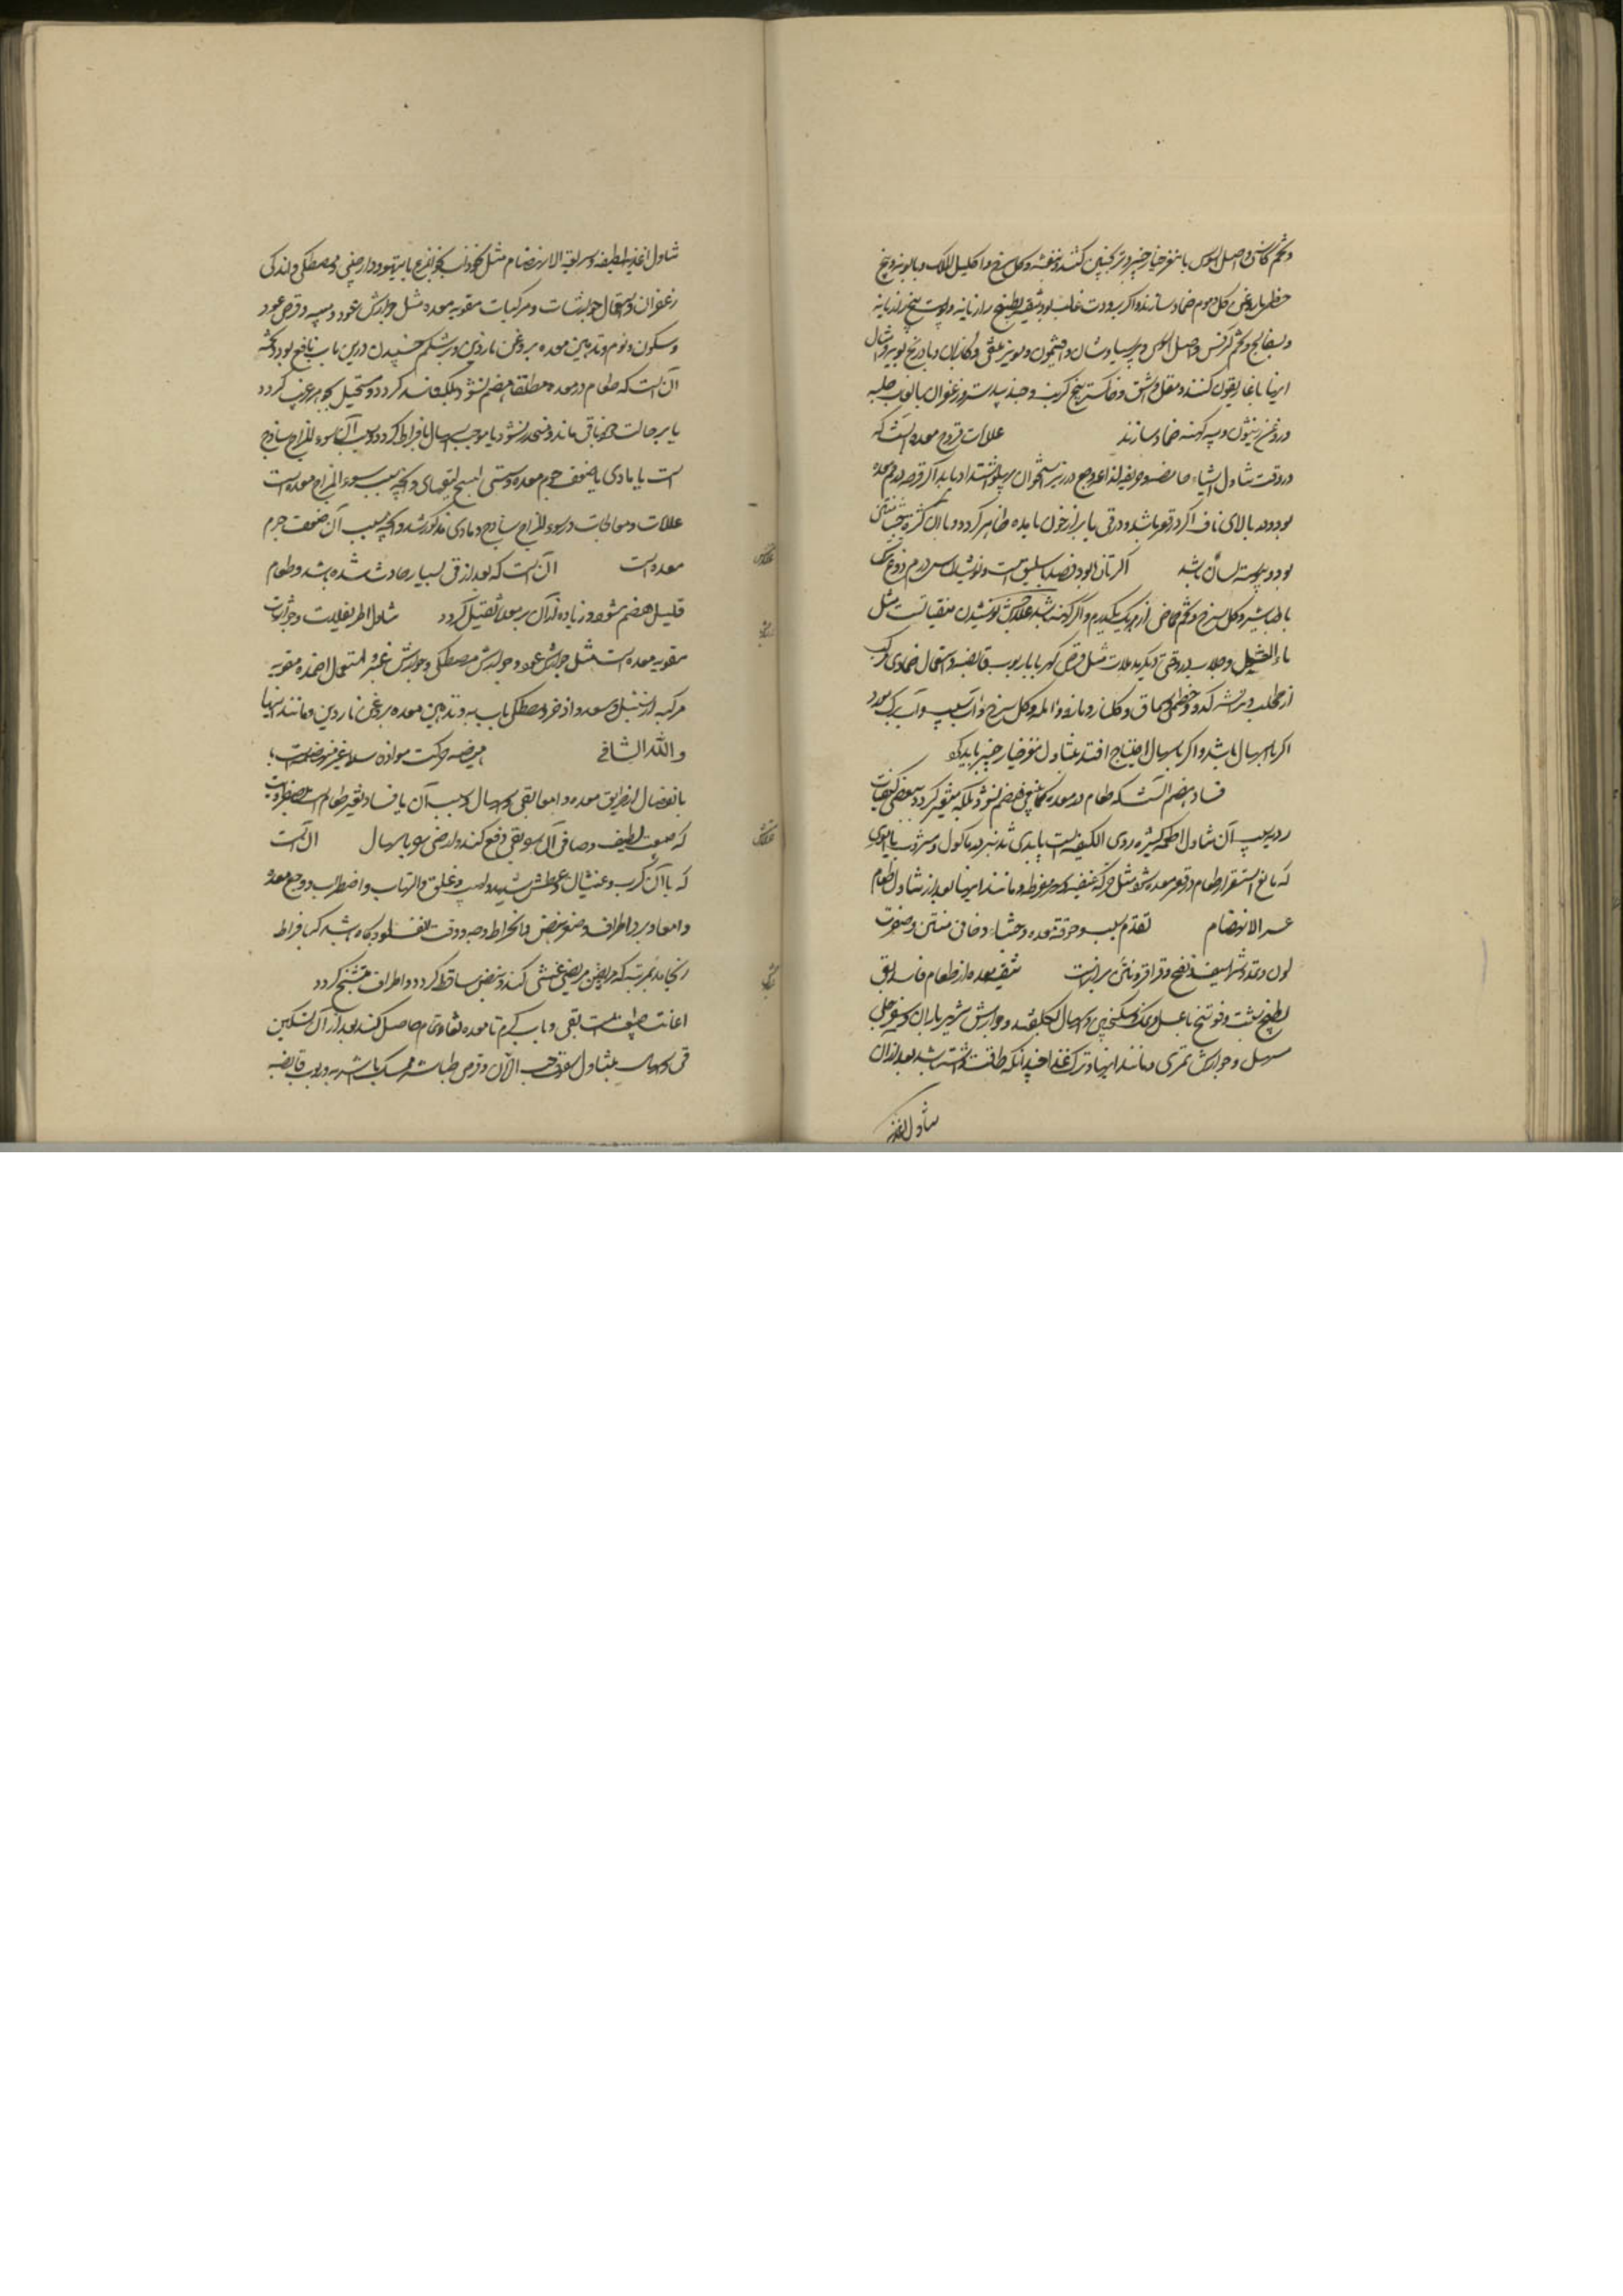 و تخم کاسنی و اصل السوس با مغز خیار چنبر و ترنجبین کنند و بنفشه و گل سرخ و اکلیل الملک و بابونه و بیخ
حنظل با روغن گل و موم ضماد سازند و اگر برودت غالب بود تنقیه بطبیخ رازیانه و پوست بیخ رازیانه
و بسفایج و تخم کرفس و اصل السوس و پرسیاوشان و افتیمون و مویز منقی و گاوزبان و بادرنجبویه و امثال
اینها با غاریقون کنند و مقل و اشق و خاکستر بیخ کرنب و جندبیدستر و زعفران با لعاب حلبه
و روغن زیتون و پیه کهنه ضماد سازند علامات قروح معده آنست که
در وقت تناول اشیاء حامضه و حریفه لذع و وجع در زیر استخوان پهلو اشتداد یابد اگر قرحه در فم معده
بود و در بالای ناف اگر در قعر باشد و در قی یا براز خون یا مده ظاهر گردد و با آن کثرت جشا منتن
بود و یبوست لسان باشد اگر تازه بود فصد باسلیق است و نوشیدن سی درم دوغ
با طباشیر و گل سرخ و تخم حماضی از هر یک یکدرم و اگر کهنه باشد علاجش نوشیدن منقیات است مثل
ماء العسل و جلاب در وقتی و دیگر مدملات مثل قرص کهربا با ربوب قابضه و استعمال ضمادی مرکب
از طحلب و تراشه کدو و خطمی و سماق و گلنار و مازو و آمله و گل سرخ و آب سیب و آب برگ مورد
اگر با اسهال باشد و اگر باسهال احتیاج افتد بتناول مغز خیار چنبر باید کرد
فساد هضم آنست که طعام در معده کما ینبغی هضم نشود بلکه متغیر گردد ببعضی کیفیات
ردیه سبب آن تناول اطعمه کثیره ردی الکیفیه است یا بدی تدبیر در ماکول و مشروب یا اموری
که مانع استقرار طعام در قعر معده شود مثل حرکة عنیفه و سهر مفرط و مانند اینها بعد از تناول طعام
عسر الانهضام تقدم سبب و حرقت معده و جشاء دخانی منتن و صفرت
لون و تمدد شراسیف و نفخ و قراقر و نتن براز است تنقیه معده از طعام فاسد بقی
بطبیخ شبت و فوتنج با عسل و نمک و سکنجبین و اسهال بگلقند و جوارش شهریاران و سفرجلی
مسهل و جوارش تمری و مانند اینها و ترک غذا چندانکه طاقت داشته باشد بعد از آن
تناول اغذیه
تناول اغذیه لطیفه و سریعة الانهضام مثل نخودآب بچوزه مرغ یا تیهو و دارچینی و مصطکی و اندکی
زعفران و استعمال جوارشات و مرکبات مقویه معده مثل جوارش عود و بسیسه و قرص عود
و سکون و نوم و تدهین معده بروغن ناردین و بر شکم خسپیدن درین باب نافع بود و تخمه
آن است که طعام در معده مطلقا هضم نشود بلکه فاسد گردد و مستحیل بجوهر غریب گردد
یا بر حالت خود باقی ماند و منحدر نشود یا موجب اسهال بافراط گردد و سبب آن یا سوء المزاج ساذج
است یا مادی یا ضعف جرم معده و سستی انسج لیفهای و آنچه بسبب سوء المزاج معده است
علامات و معالجات در سوء المزاج ساذج و مادی مذکور شد و آنچه بسبب آن ضعف جرم
معده است آن است که بعد از قی بسیار حادث شده باشد و طعام
قلیل هضم شود و زیاده از آن بر معده ثقیل گردد تناول اطریفلات و جوارشات
مقویه معده است مثل جوارش عود و جوارش مصطکی و جوارش عنبر و استعمال اضمده مقویه
مرکبه از سنبل و سعد و اذخر و مصطکی بآب به و تدهین معده بروغن ناردین و مانند اینها
و الله الشافی هیضه حرکت مواد فاسده غیر منهضمه است
بانفصال از طریق معده و امعا بقی و اسهال و سبب آن یا فساد و تغیر طعام است بصفراویت
که صعب لطیف و صافی آن سوی قی دفع کند و ارضی سوی باسهال آن است
که با آن کرب و غثیان و عطش شدید و لهیب و قلق و التهاب و اضطراب و وجع معده
و امعا و برد اطراف و صغر نبض و انخراط وجه و دقت انف بود و گاه باشد که بافراط
انجامد بمرتبه که مریض غشی کند و نبض ساقط گردد و اطراف متشنج گردد
اعانت طبیعت است بقی و بآب گرم تا معده نقاء تام حاصل کند بعد از آن تسکین
قی و اسهال بتناول سفوف حب الآس و قرص طباشیر ممسک با شربه و ربوب قابضه